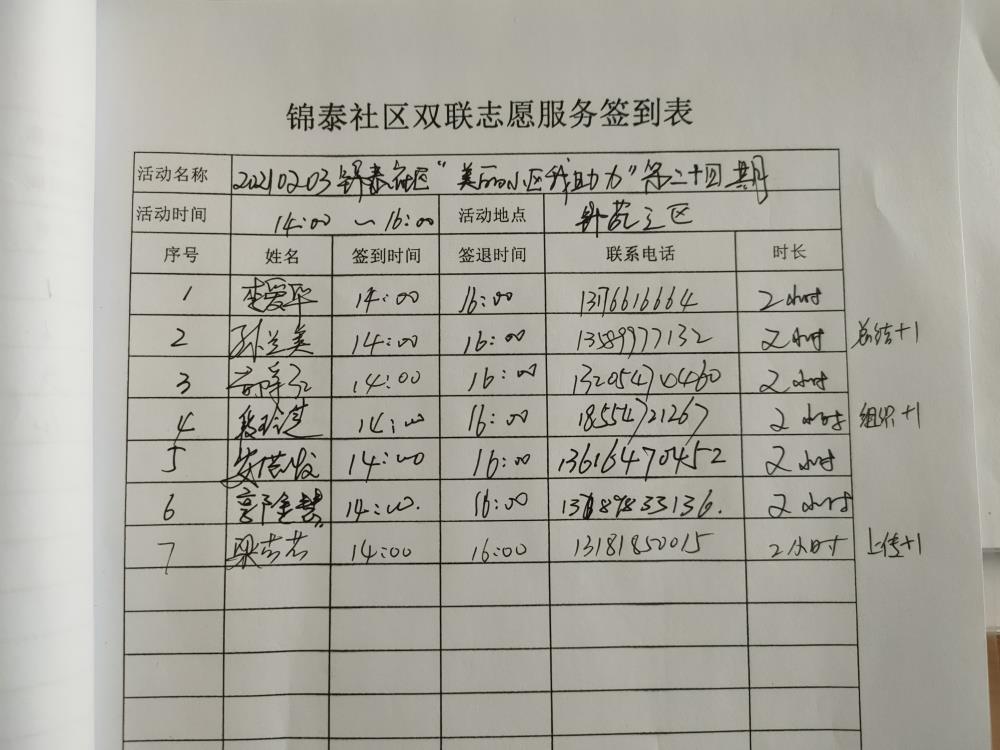 锦泰社区双联志愿服务签到表
活动名称 20210203锦泰社区“美丽小区我助力”第二十四期
活动时间 14:00 ~ 16:00 活动地点 锦苑三区
序号 姓名 签到时间 签退时间 联系电话 时长
1 李爱华 14:00 16:00 13176616664 2小时
2 孙兰美 14:00 16:00 13589977132 2小时 总结+1
3 14:00 16:00 13205470460 2小时
4 14:00 16:00 18554721267 2小时 组织+1
5 14:00 16:00 13616470452 2小时
6 14:00. 16:00 2小时
7 梁志芳 14:00 16:00 13181850015 2小时 上传+1